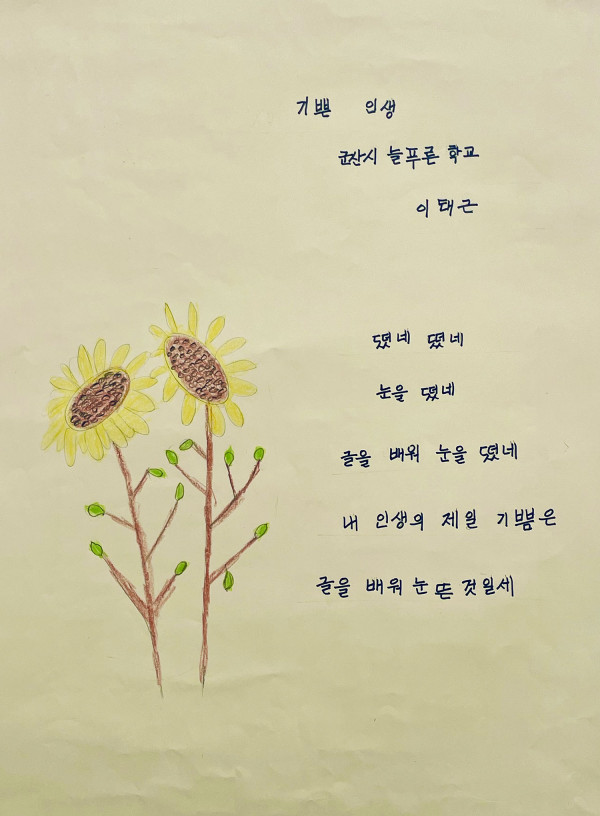 기쁜 인생
군산시 늘푸른 학교
이태근
떴네 떴네
눈을 떴네
글을 배워 눈을 떴네
내 인생의 제일 기쁨은
글을 배워 눈 뜬 것일세